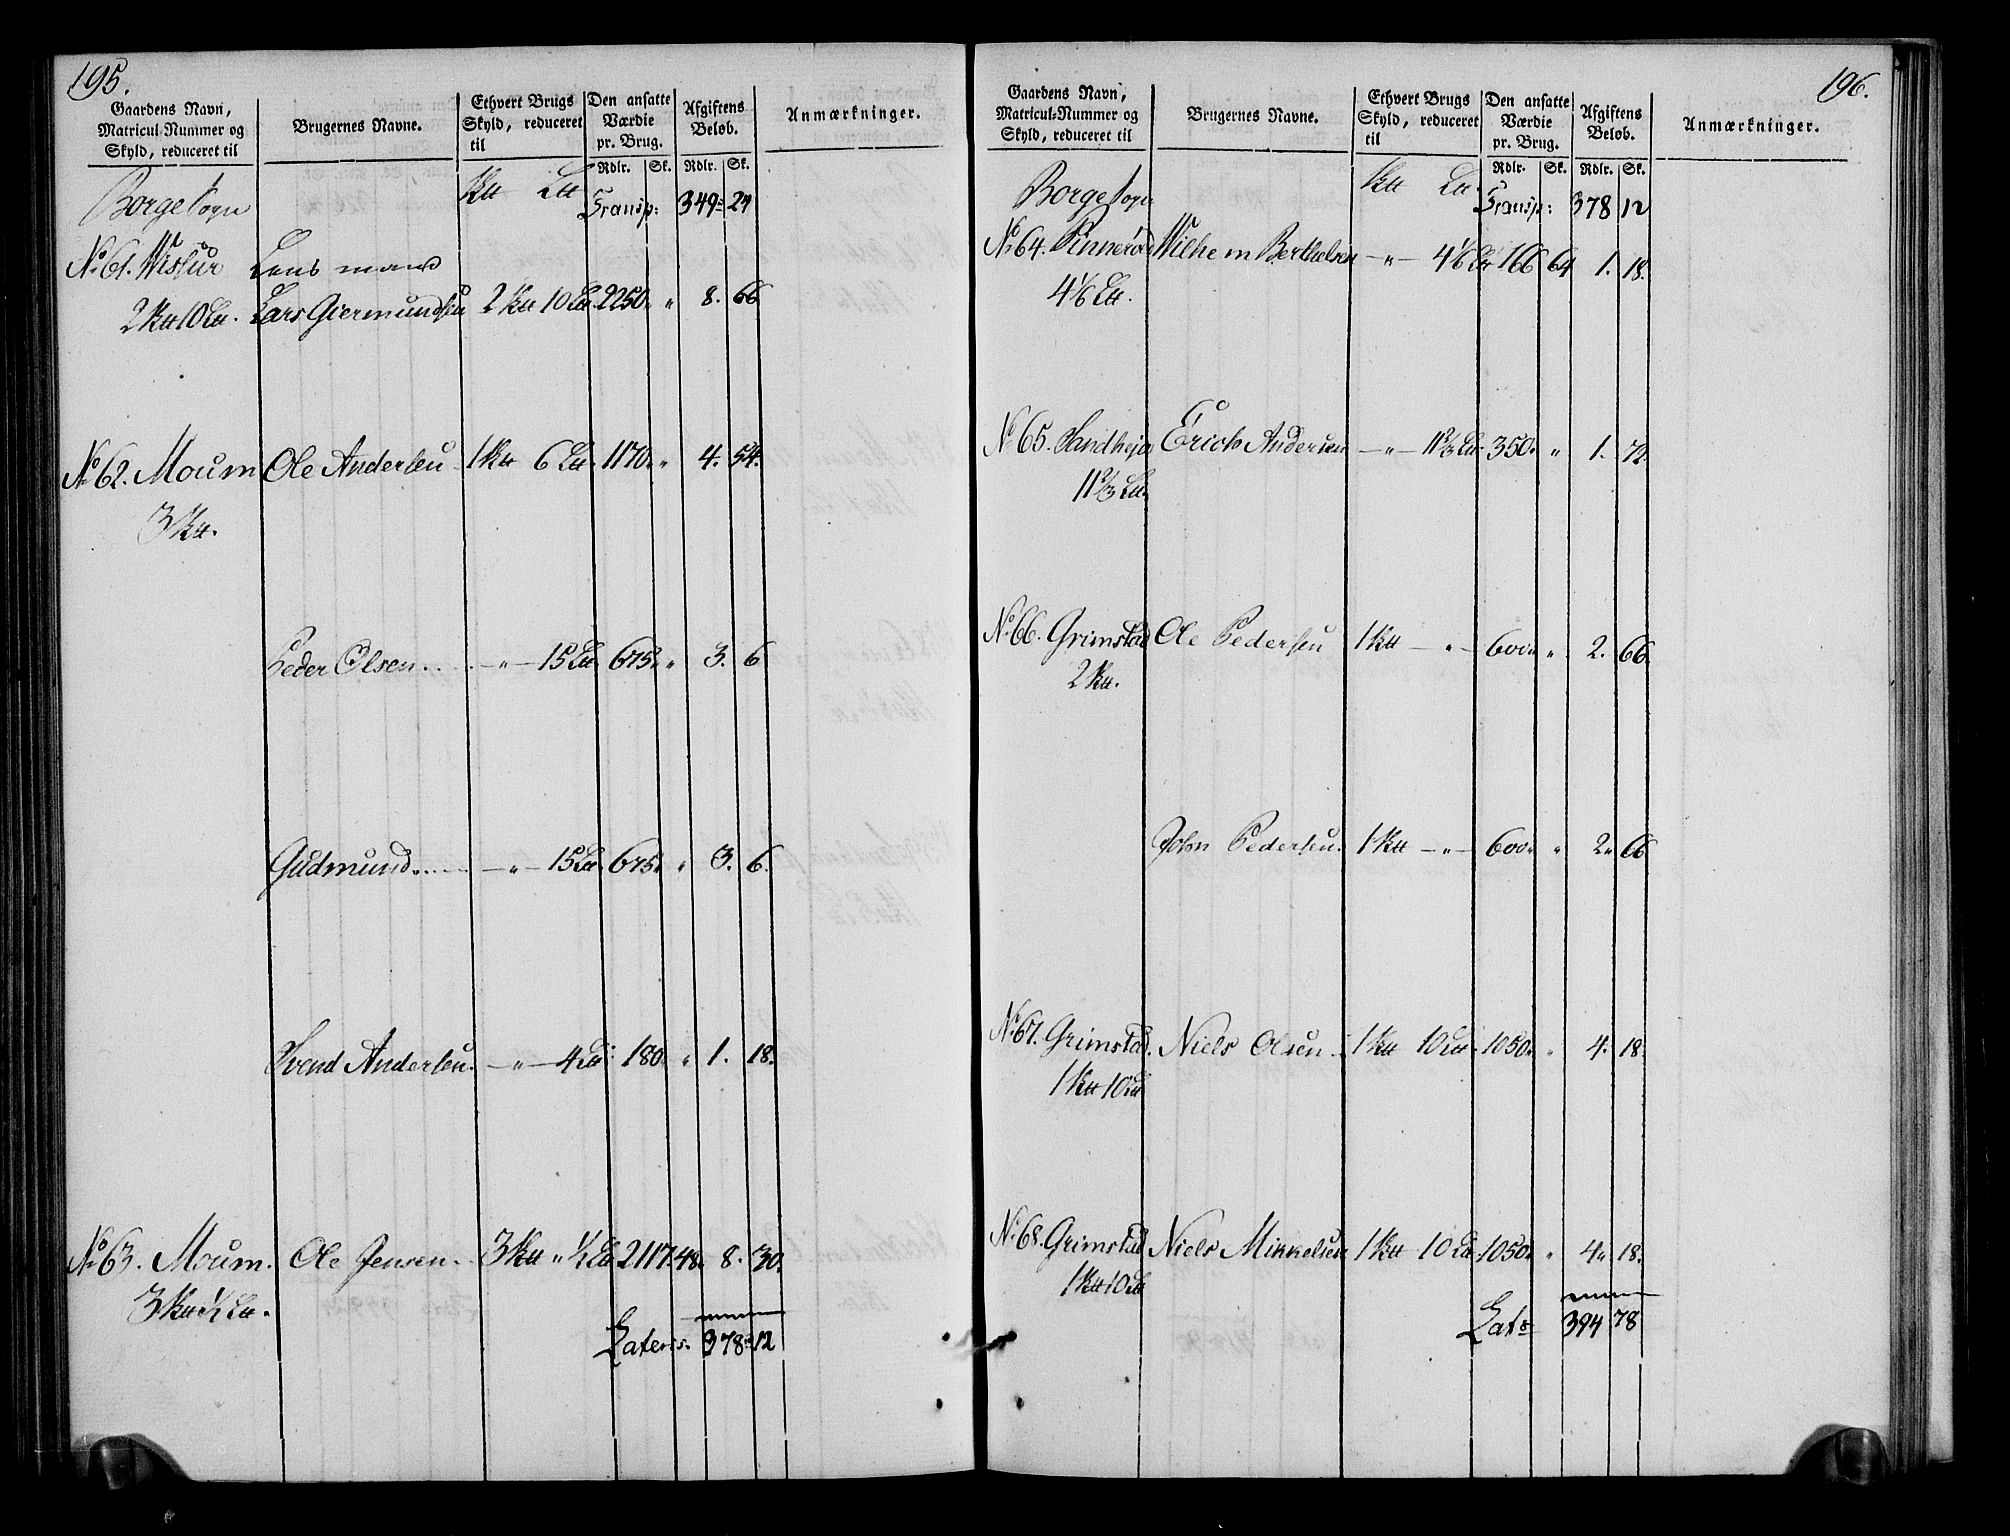 195.
Gaardens Navn, Matricul-Nummer og Skyld, reduceret til | Brugernes Navne. | Ethvert Brugs Skyld, reduceret til | Den ansatte Værdie pr. Brug. | Afgiftens Beløb. | Anmærkninger.
Rdlr. | Sk. | Rdlr. | Sk.
Borge Sogn | Transp: 349 24
No 61. Wisfur Lens mand
2 10 Lars Giermundsen 2 10 2250 " 8. 66
No 62. Moum Ole Andersen 1 6 1170 " 4. 54.
3
Peder Olsen — " — 15 675 " 3. 6
Gudmund — " — 15 675 " 3. 6.
Svend Andersen — " — 4 180 " 1. 18.
No 63. Moum. Ole Jensen. 3 " ½ 2117. 48. 8. 30.
3 ½
Lateris. 378 12
196.
Gaardens Navn, Matricul-Nummer og Skyld, reduceret til | Brugernes Navne. | Ethvert Brugs Skyld, reduceret til | Den ansatte Værdie pr. Brug. | Afgiftens Beløb. | Anmærkninger.
Rdlr. | Sk. | Rdlr. | Sk.
Borge Sogn | Transp: 378 12
No 64. Wilhem Berthelsen — " — 4 1/6 166 64 1. 18.
4 1/6
No 65. Erich Andersen — " — 11 2/3 350 " 1. 72.
11 2/3
No 66. Grimstad Ole Pedersen 1 — " — 600 " 2. 66.
2
John Pedersen. 1 — " — 600 " 2. 66
No 67. Grimstad. Niels Olsen. 1 10 1050 " 4. 18.
1 10
No 68. Grimstad Niels Mikkelsen 1 10 1050 " 4. 18.
1 10
Lats 394 78